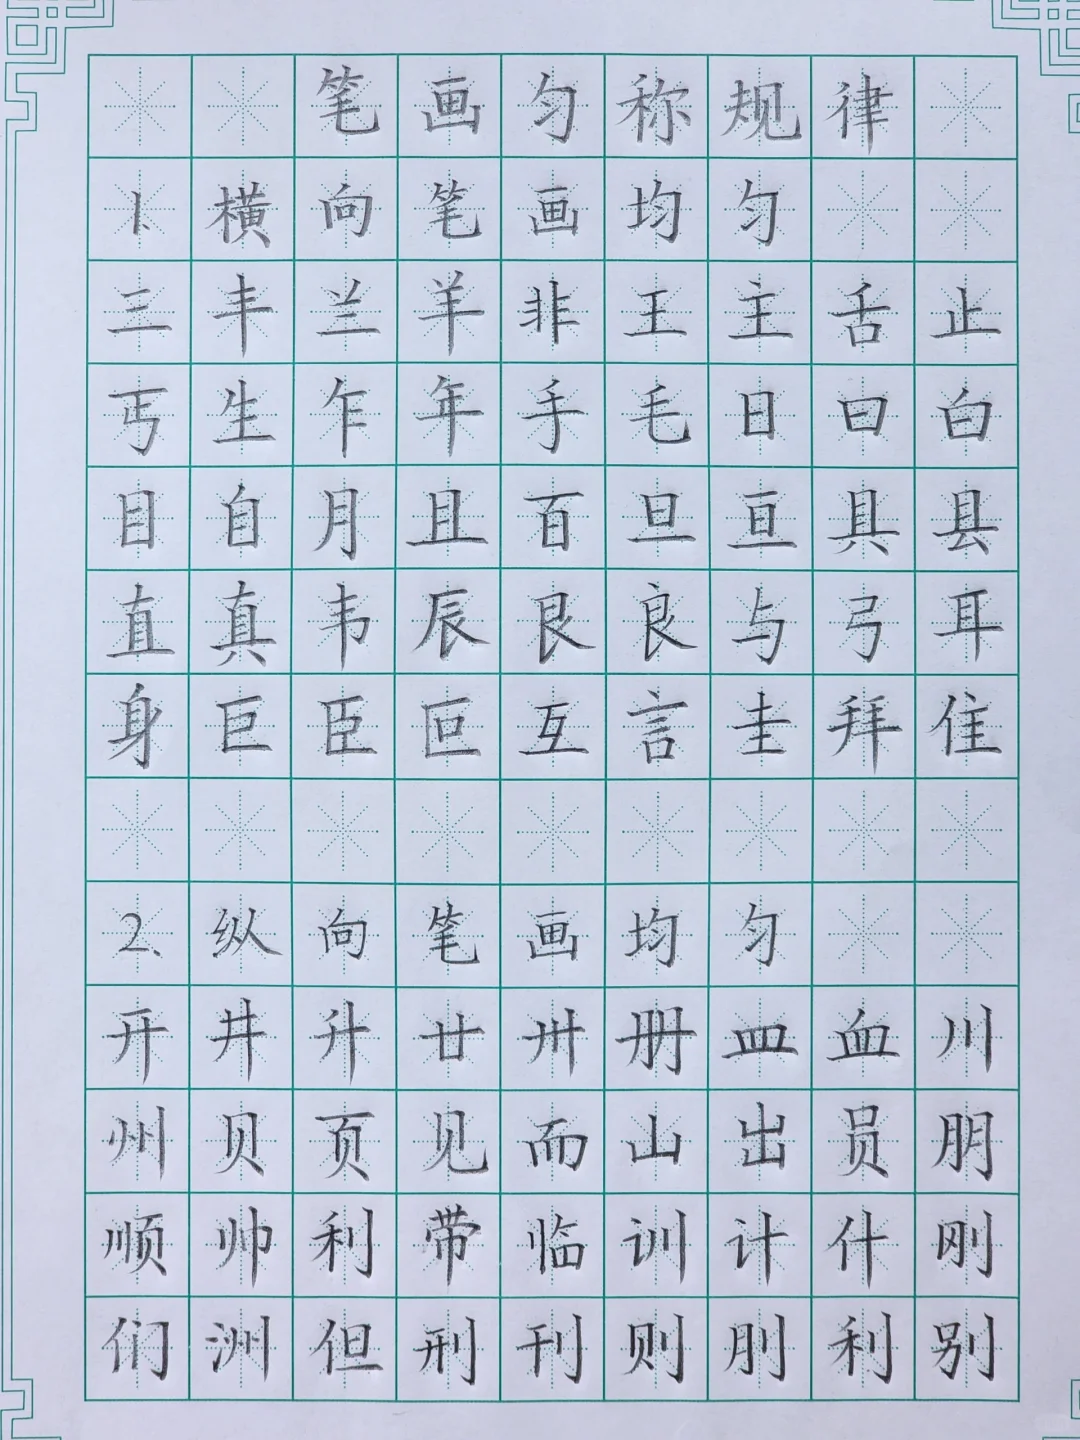 笔画匀称规律
1.横向笔画均匀
三丰兰羊非王主舌止
丐生乍年手毛日曰白
目自月且百旦亘具县
直真韦辰艮良与弓耳
身巨臣叵互言圭拜住
2、纵向笔画均匀
开井升廿卅册皿血川
州贝页见而山出员朋
顺帅利带临训计什刚
们洲但刑刊则刖利别